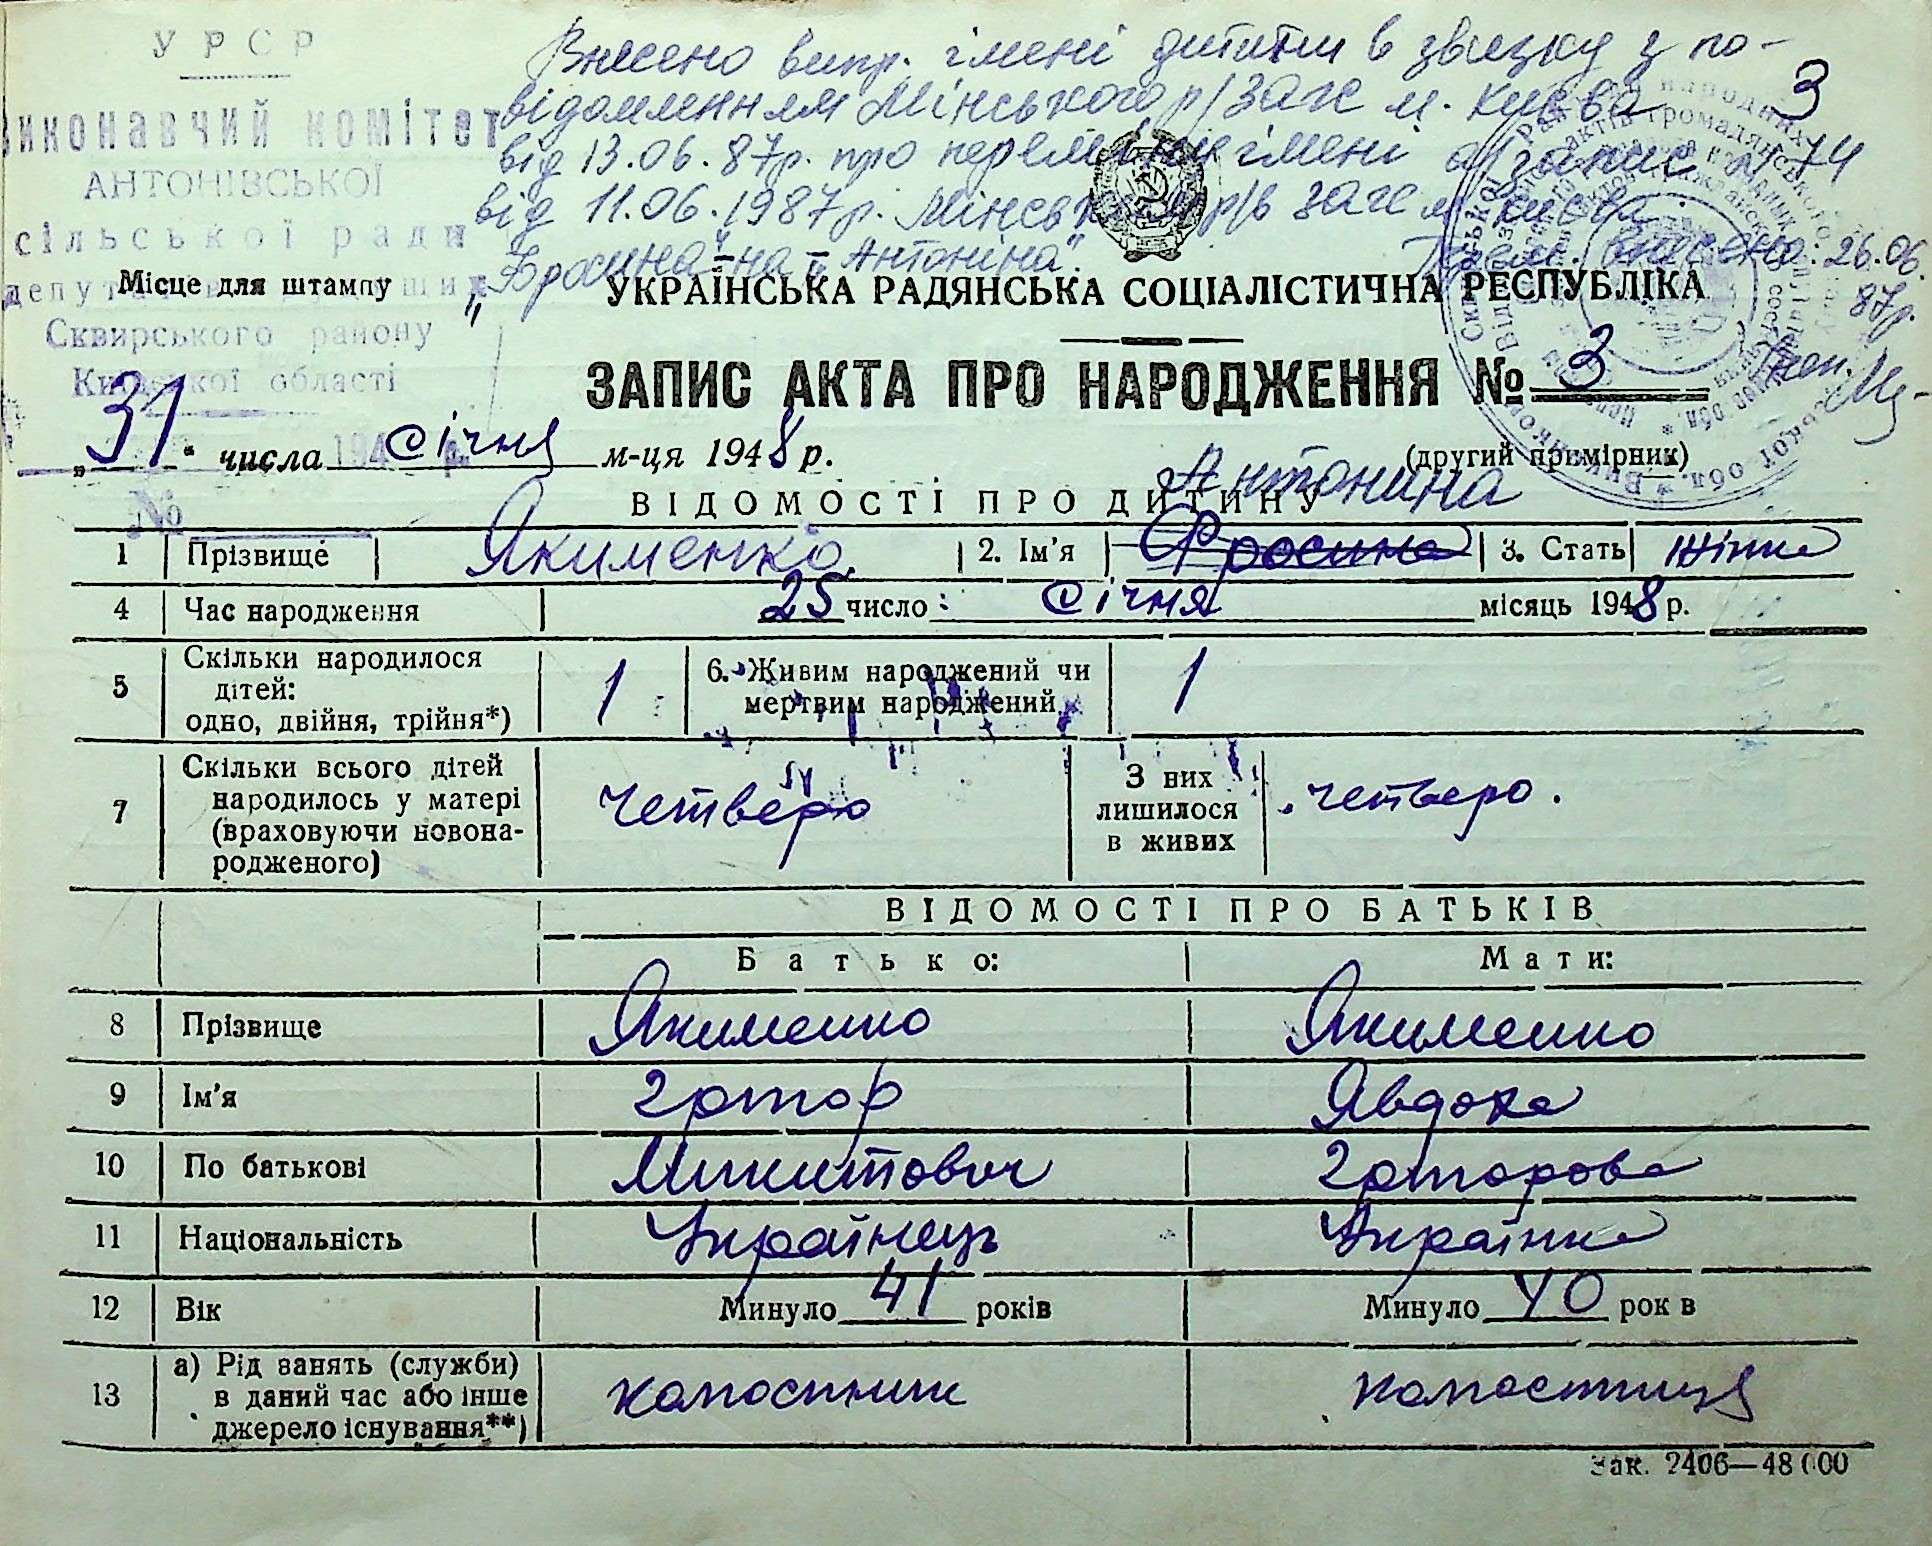 УРСР
Виконавчий комітет
АНТОНІВСЬКОЇ
сільської ради
депутатів трудящих
Сквирського району
Київської області
Місце для штампу
Внесено випр. імені дитини в звязку з по-
відомленням Мінського р/загс м. Києва
від 13.06.87р. про переміну імені а/запис №74
від 11.06.1987р. Мінськ р/в загс м. Києва.
"Фросина" на "Антоніна".
внесено: 26.06.
87р.
3
УКРАЇНСЬКА РАДЯНСЬКА СОЦІАЛІСТИЧНА РЕСПУБЛІКА
ЗАПИС АКТА ПРО НАРОДЖЕННЯ № 3
„31" числа січня м-ця 1948 р.
(другий примірник)
№
ВІДОМОСТІ ПРО ДИТИНУ
Антонина
1 Прізвище Якименко 2. Ім'я Фросина 3. Стать жінка
4 Час народження 25 число: січня місяць 1948 р.
5 Скільки народилося дітей: одно, двійня, трійня*) 1 6. Живим народжений чи мертвим народжений 1
7 Скільки всього дітей народилось у матері (враховуючи новонародженого) четверо З них лишилося в живих четверо.
ВІДОМОСТІ ПРО БАТЬКІВ
Батько: Мати:
8 Прізвище Якименко Якименко
9 Ім'я Явдоха
10 По батькові Микитович
11 Національність Українець Українка
12 Вік Минуло 41 років Минуло 40 рок в
13 а) Рід занять (служби) в даний час або інше джерело існування**) колгоспник колгоспниця
Зак. 2406—48000